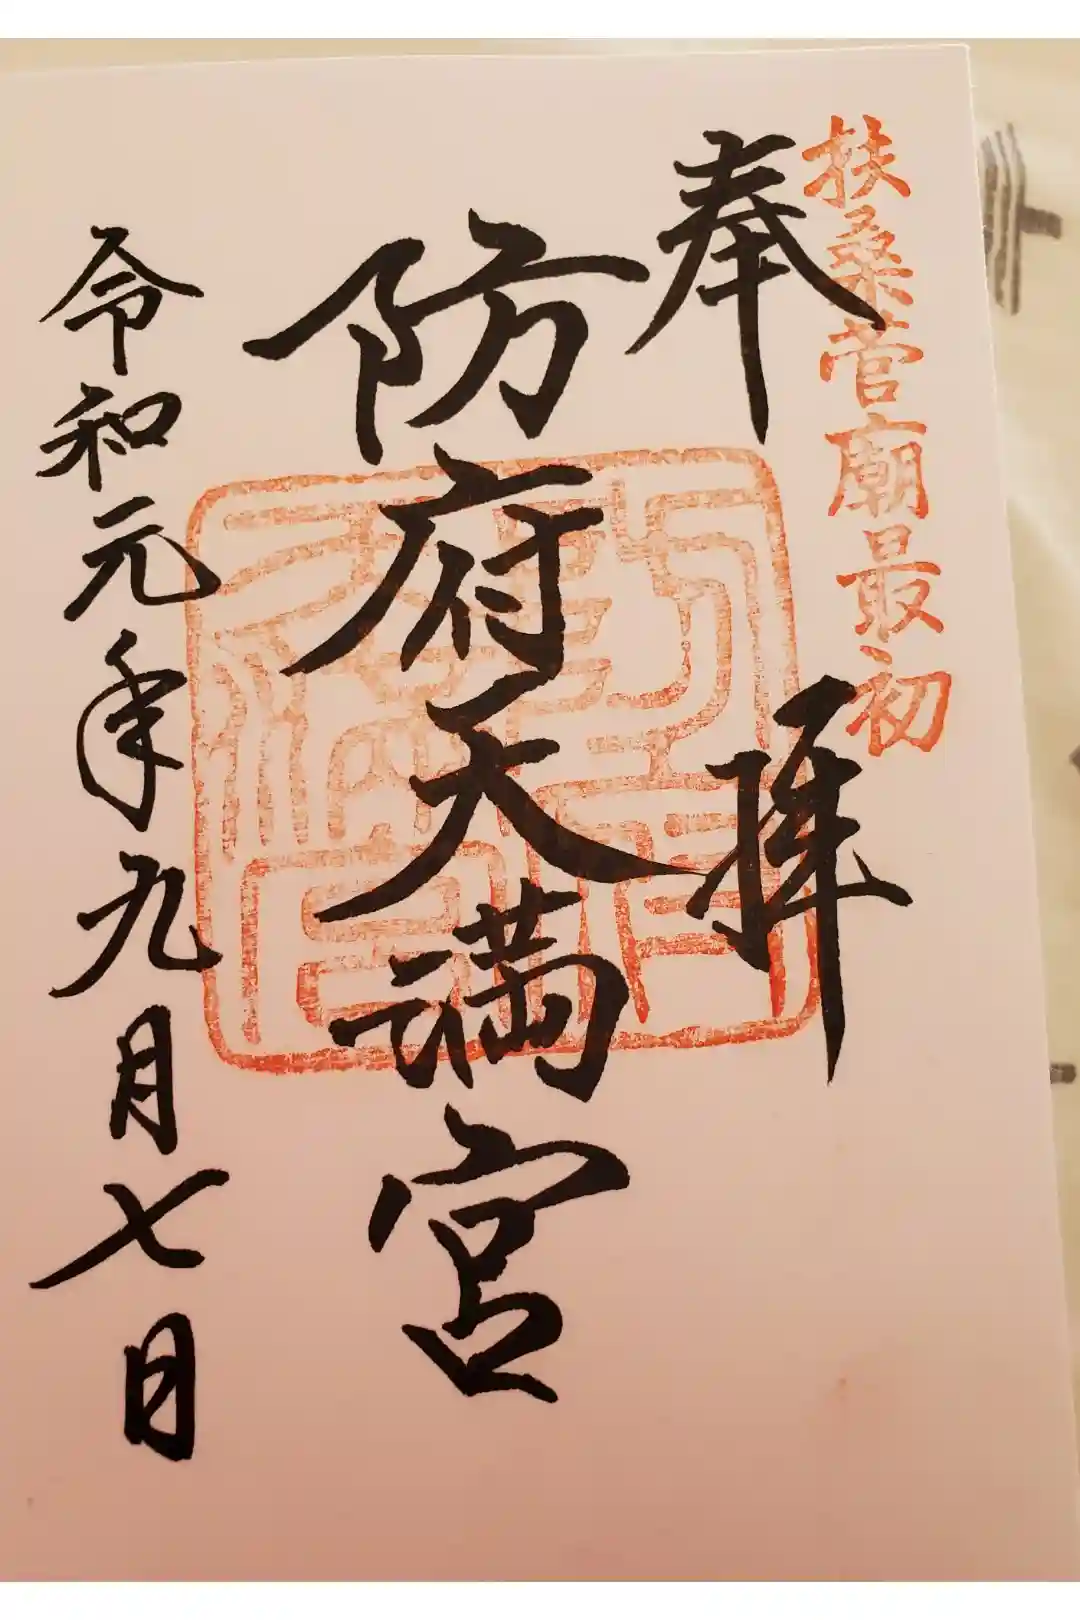 扶桑菅廟最初
奉拝
防府天満宮
令和元年九月七日